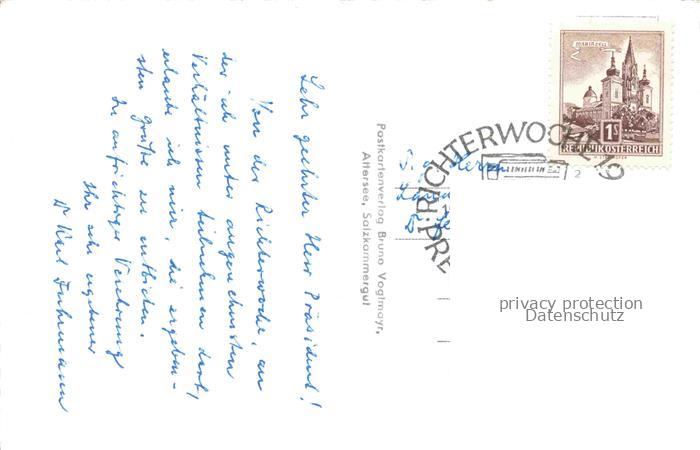 Sehr geehrter Herr Präsident!
Von der Richterwoche, an
der ich unter angenehmsten
Verhältnissen teilnehmen darf,
erlaube ich mir, die ergeben-
sten Grüße zu entbieten.
In aufrichtiger Verehrung
Ihr sehr ergebener
Dr Karl
Postkartenverlag Bruno Voglmayr,
Attersee, Salzkammergut
S. g. Herrn
Dr
MARIAZELL
1S
REPUBLIK ÖSTERREICH
RICHTERWOCHE 19
2
privacy protection
Datenschutz